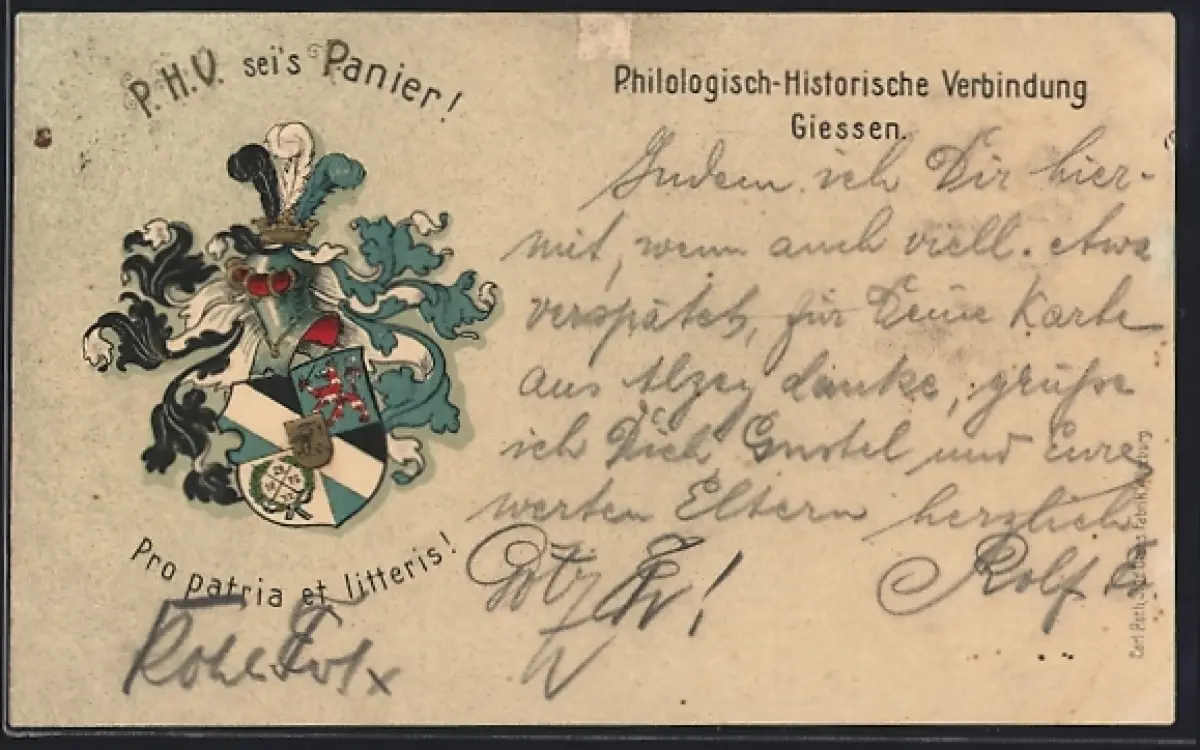 P.H.V. sei's Panier!
Philologisch-Historische Verbindung
Giessen.
Indem ich Dir hier-
mit, wenn auch viell. etwas
verspätet, für Deine Karte
aus Alzey danke, grüße
ich Dich Gustel und Eure
werten Eltern herzlich
Rolf
Götz
Pro patria et litteris!
Carl Roth,